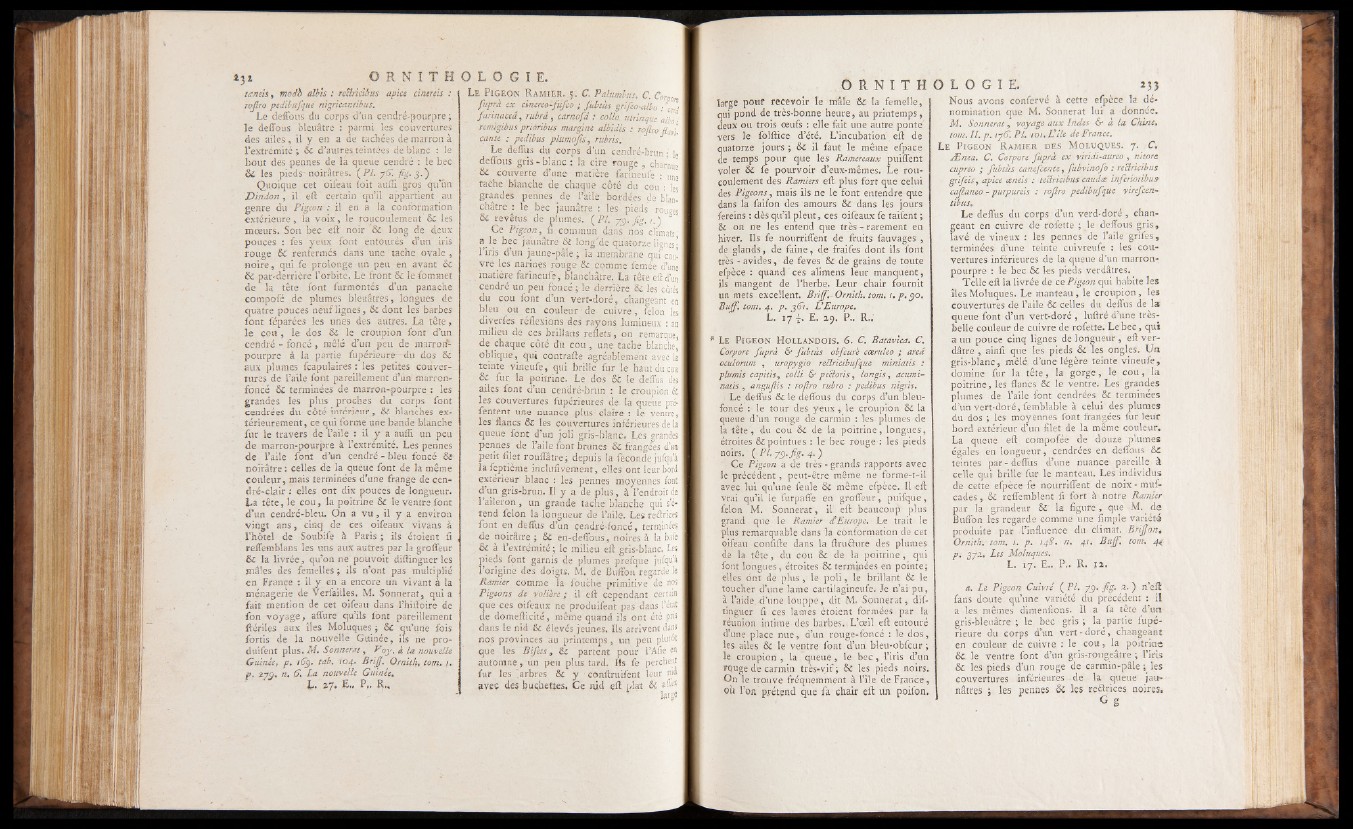 232 ORNITHOLOGIE.
tæneis, modò albis : rectricibus apice cinereis :
rostro pedibusque nigricantibus.
Le dessous du corps d'un cendré-pourpre ;
le dessous bleuâtre : parmi les couvertures
des aîles, il y en a de tachées de marron à
l'extrémité ; & d'autres teintées de blanc : le
bout des pennes de la queue cendré : le bec
& les pieds noirâtres. ( Pl. 76. fig. 3.)
Quoique cet oiseau soit aussi gros qu'un
Dindon, il est certain qu'il appartient au
genre du Pigeon : il en a la conformation
extérieure, la voix, le roucoulement & les
mœurs. Son bec est noir & long de deux
pouces : ses yeux sont entourés d'un iris
rouge & renfermés dans une tache ovale,
noire, qui se prolonge un peu en avant &
& par-derrière l'orbite. Le front & le sommet
de la tête sont surmontés d'un panache
composé de plumes bleuâtres, longues de
quatre pouces neuf lignes, & dont les barbes
sont séparées les unes des autres. La tête,
le cou, le dos & le croupion sont d'un
cendré - foncé, mêlé d'un peu de marron-
pourpre à la partie supérieure du dos &
aux plumes scapulaires : les petites couver-
tures de l'aîle sont pareillement d'un marron-
foncé & terminées de marron-pourpre : les
grandes les plus proches du corps sont
cendrées du côté intérieur, & blanches ex-
térieurement, ce qui forme une bande blanche
sur le travers de l'aîle : il y a aussi un peu
de marron-pourpre à l'extrémité. Les pennes
de l'aîle sont d'un cendré - bleu foncé &
noirâtre : celles de la queue sont de la même
couleur, mais terminées d'une frange de cen-
dré-clair : elles ont dix pouces de longueur.
La tête, le cou, la poitrine & le ventre sont
d'un cendré-bleu. On a vu, il y a environ
vingt ans, cinq de ces oiseaux vivans à
l'hôtel de Soubise à Paris ; ils étoient si
ressemblans les uns aux autres par la grosseur
& la livrée, qu'on ne pouvoit distinguer les
mâles des femelles ; ils n'ont pas multiplié
en France : il y en a encore un vivant à la
ménagerie de Versailles. M. Sonnerat, qui a
fait mention de cet oiseau dans l'histoire de
son voyage, assure qu'ils sont pareillement
stériles aux îles Moluques ; & qu'une fois
sortis de la nouvelle Guinée, ils ne pro-
duisent plus. M. Sonnerat, Voy. à la nouvelle
Guinée, p. 169. tab. 104. Briss. Ornith. tom. 1.
p. 279. n. 6. La nouvelle Guinée.
L. 27. E.. P.. R..
LE PIGEON RAMIER. 5. C. Palumbus. C. Corpore
suprà ex cinereo-fusco ; subtùs griseo-albo :
farinaceâ, rubrâ, carnosâ : collo utrinque
remigibus prioribus margine albidis : rostro
cante : pedibus plumosis, rubris.
Le dessus du corps d'un cendré-brun ; le
dessous gris - blanc : la cire rouge, charnue
& couverte d'une matière farineuse : une
tache blanche de chaque côté du cou : les
grandes pennes de l'aîle bordées de blan-
châtre : le bec jaunâtre : les pieds rouges
& revêtus de plumes. ( Pl. 79. fig. 1. )
Ce Pigeon, si commun dans nos climats,
a le bec jaunâtre & long de quatorze lignes ;
l'iris d'un jaune-pâle ; la membrane qui cou-
vre les narines rouge & comme semée d'une
matière farineuse, blanchâtre. La tête est d'un
cendré un peu foncé ; le derrière & les côtés
du cou sont d'un vert-doré, changeant en
bleu ou en couleur de cuivre, selon les
diverses réflexions des rayons lumineux : au
milieu de ces brillans reflets, on remarque,
de chaque côté du cou, une tache blanche,
oblique, qui contraste agréablement avec la
teinte vineuse, qui brille sur le haut du cou
& sur la poitrine. Le dos & le dessus des
aîles sont d'un cendré-brun : le croupion &
les couvertures supérieures de la queue pré-
sentent une nuance plus claire : le ventre,
les flancs & les couvertures inférieures de la
queue sont d'un joli gris-blanc. Les grandes
pennes de l'aîle sont brunes & frangées d'un
petit filet roussâtre ; depuis la seconde jusqu'à
la septième inclusivement, elles ont leur bord
extérieur blanc : les pennes moyennes sont
d'un gris-brun. Il y a de plus, à l'endroit de
l'aîleron, un grande tache blanche qui s'é-
tend selon la longueur de l'aîle. Les rectrices
sont en dessus d'un cendré-foncé, terminées
de noirâtre ; & en-dessous, noires à la base
& à l'extrémité ; le milieu est gris-blanc. Les
pieds sont garnis de plumes presque jusqu'à
l'origine des doigts. M. de Buffon regarde le
Ramier comme la souche primitive de nos
Pigeons de volière ; il est cependant certain
que ces oiseaux ne produisent pas dans l'état
de domesticité, même quand ils ont été pris
dans le nid & élevés jeunes. Ils arrivent dans
nos provinces au printemps, un peu plutôt
que les Bisets, & partent pour l'Asie en
automne, un peu plus tard. Ils se perchent
sur les arbres & y construisent leur nid
avec des buchettes. Ce nid est plat & assez
large
ORNITHOLOGIE. 233
large pour recevoir le mâle & la femelle,
qui pond de très-bonne heure, au printemps,
deux ou trois œufs : elle fait une autre ponte
vers le solstice d'été. L'incubation est de
quatorze jours ; & il faut le même espace
de temps pour que les Ramereaux puissent
voler & se pourvoir d'eux-mêmes. Le rou-
coulement des Ramiers est plus fort que celui
des Pigeons, mais ils ne le font entendre que
dans la saison des amours & dans les jours
sereins : dès qu'il pleut, ces oiseaux se taisent ;
& on ne les entend que très - rarement en
hiver. Ils se nourrissent de fruits sauvages,
de glands, de faîne, de fraises dont ils sont
très - avides, de feves & de grains de toute
espèce : quand ces alimens leur manquent,
ils mangent de l'herbe. Leur chair fournit
un mets excellent. Briss. Ornith. tom. 1. p. 90.
Buff. tom. 4. p. 361. L'Europe.
L. 17 ½. E. 29. P.. R..
LE PIGEON HOLLANDOIS. 6. C. Batavica. C.
Corpore suprà & subtùs obscurè cœruleo ; areâ
oculorum, uropygio rectricibusque miniatis :
plumis capitis, colli & pectoris, longis, acumi-
natis, angustis : rostro rubro : pedibus nigris.
Le dessus & le dessous du corps d'un bleu-
foncé : le tour des yeux, le croupion & la
queue d'un rouge de carmin : les plumes de
la tête, du cou & de la poitrine, longues,
étroites & pointues : le bec rouge : les pieds
noirs. ( Pl. 79. fig. 4. )
Ce Pigeon a de très - grands rapports avec
le précédent, peut-être même ne forme-t-il
avec lui qu'une seule & même espèce. Il est
vrai qu'il le surpasse en grosseur, puisque,
selon M. Sonnerat, il est beaucoup plus
grand que le Ramier d'Europe. Le trait le
plus remarquable dans la conformation de cet
oiseau consiste dans la structure des plumes
de la tête, du cou & de la poitrine, qui
sont longues, étroites & terminées en pointe ;
elles ont de plus, le poli, le brillant & le
toucher d'une lame cartilagineuse. Je n'ai pu,
à l'aide d'une louppe, dit M. Sonnerat, dis-
tinguer si ces lames étoient formées par la
réunion intime des barbes. L'œil est entouré
d'une place nue, d'un rouge-foncé : le dos,
les aîles & le ventre sont d'un bleu-obscur ;
le croupion, la queue, le bec, l'iris d'un
rouge de carmin très-vif ; & les pieds noirs.
On le trouve fréquemment à l'île de France,
où l'on prétend que sa chair est un poison.
Nous avons conservé à cette espèce la dé-
nomination que M. Sonnerat lui a donnée.
M. Sonnerat, voyage aux Indes & à la Chine,
tom. II. p. 176. Pl. 101. L'île de France.
LE PIGEON RAMIER DES MOLUQUES. 7. C.
Ænea. C. Corpore suprà ex viridi-aureo, nitore
cupreo ; subtùs canescente, subvinoso : rectricibus
griseis, apice æneis : tectricibus caudæ inferioribus
castaneo - purpureis : rostro pedibusque virescen-
tibus.
Le dessus du corps d'un verd-doré, chan-
geant en cuivre de rosette ; le dessous gris,
lavé de vineux : les pennes de l'aîle grises,
terminées d'une teinte cuivreuse : les cou-
vertures inférieures de la queue d'un marron-
pourpre : le bec & les pieds verdâtres.
Telle est la livrée de ce Pigeon qui habite les
îles Moluques. Le manteau, le croupion, les
couvertures de l'aîle & celles du dessus de la
queue sont d'un vert-doré, lustré d'une très-
belle couleur de cuivre de rosette. Le bec, qui
a un pouce cinq lignes de longueur, est ver-
dâtre, ainsi que les pieds & les ongles. Un
gris-blanc, mêlé d'une légère teinte vineuse,
domine sur la tête, la gorge, le cou, la
poitrine, les flancs & le ventre. Les grandes
plumes de l'aîle sont cendrées & terminées
d'un vert-doré, semblable à celui des plumes
du dos ; les moyennes sont frangées sur leur
bord extérieur d'un filet de la même couleur.
La queue est composée de douze plumes
égales en longueur, cendrées en dessous &
teintes par - dessus d'une nuance pareille à
celle qui brille sur le manteau. Les individus
de cette espèce se nourrissent de noix - mus-
cades, & ressemblent si fort à notre Ramier
par la grandeur & la figure, que M. de
Buffon les regarde comme une simple variété
produite par l'influence du climat. Brisson,
Ornith. tom. 1. p. 148. n. 41. Buff. tom. 4.
p. 372. Les Moluques.
L. 17. E.. P.. R. 12.
a. Le Pigeon Cuivré ( Pl. 79. fig. 2. ) n'est
sans doute qu'une variété du précédent : il
a les mêmes dimensions. Il a sa tête d'un
gris-bleuâtre ; le bec gris ; la partie supé-
rieure du corps d'un vert - doré, changeant
en couleur de cuivre : le cou, la poitrine
& le ventre sont d'un gris-rougeâtre ; l'iris
& les pieds d'un rouge de carmin-pâle ; les
couvertures inférieures de la queue jau-
nâtres ; les pennes & les rectrices noires.
G g